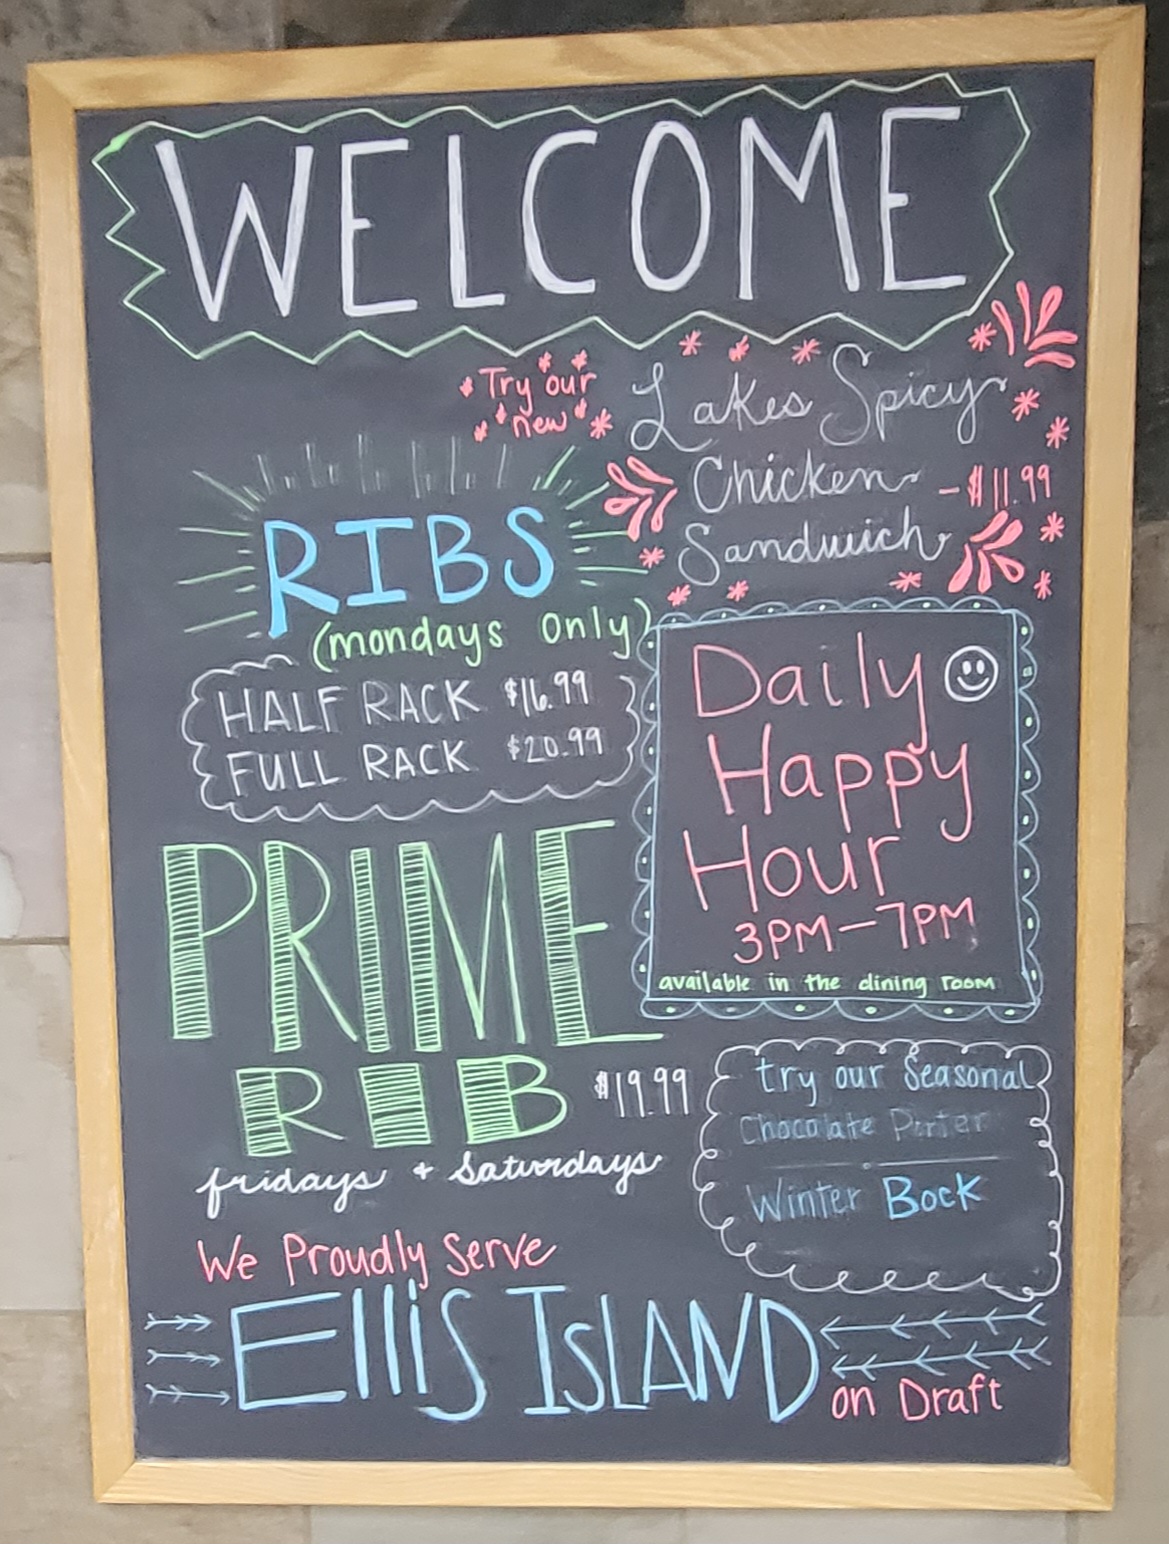 WELCOME
Try our
new
Lakes Spicy
Chicken - $11.99
Sandwich
RIBS
(mondays only)
HALF RACK $16.99
FULL RACK $20.99
Daily
Happy
Hour
3PM-7PM
available in the dining room
PRIME
RIB $19.99
fridays + Saturdays
try our Seasonal
Chocolate Porter
Winter Bock
We Proudly Serve
EllIS ISLAND
on Draft